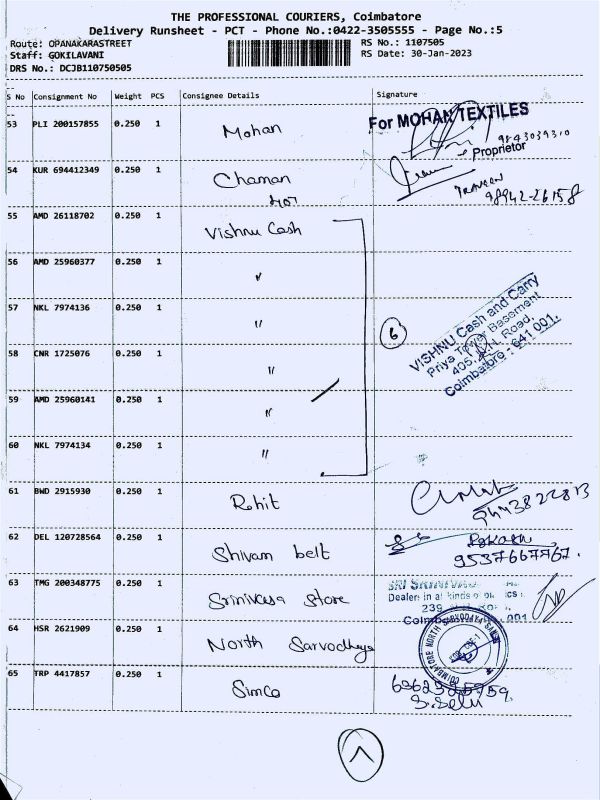 THE PROFESSIONAL COURIERS, Coimbatore
Delivery Runsheet - PCT - Phone No.:0422-3505555 - Page No.:5
Route: OPANAKARASTREET
Staff: GOKILAVANI
DRS No.: DCJB110750505
RS No.: 1107505
RS Date: 30-Jan-2023
S No Consignment No Weight PCS Consignee Details Signature
53 PLI 200157855 0.250 1 Mohan
For MOHAN TEXTILES
9843039310
Proprietor
54 KUR 694412349 0.250 1 Chaman
98942-26158
55 AMD 26118702 0.250 1 Vishnu Cash
56 AMD 25960377 0.250 1 〃
57 NKL 7974136 0.250 1 〃
58 CNR 1725076 0.250 1 〃
59 AMD 25960141 0.250 1 〃
60 NKL 7974134 0.250 1 〃
6
VISHNU Cash and Carry
Priya Tower Basement
405, N. Road,
Coimbatore - 641 001.
61 BWD 2915930 0.250 1 Rohit
9443822813
62 DEL 120728564 0.250 1 Shivam belt
9537667767.
63 TMG 200348775 0.250 1 Srinivasa store
Dealers in all kinds of
239
001
64 HSR 2621909 0.250 1 North Sarvodhaya
COIMBATORE NORTH SARVODAYA SANGH
65 TRP 4417857 0.250 1 Simco
S. Selvi